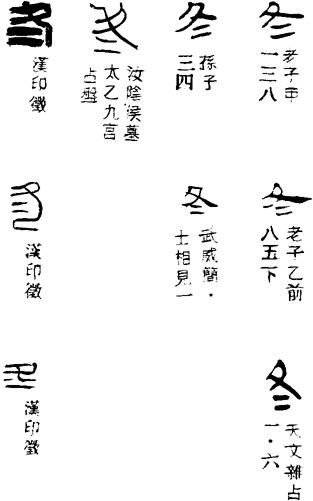 冬
老子甲
一三八
冬
老子乙前
八五下
冬
天文雜占
一·六
冬
孫子
三四
冬
武威簡·
士相見一
冬
汝陰侯墓
太乙九宮
占盤
冬
漢印徵
冬
漢印徵
冬
漢印徵